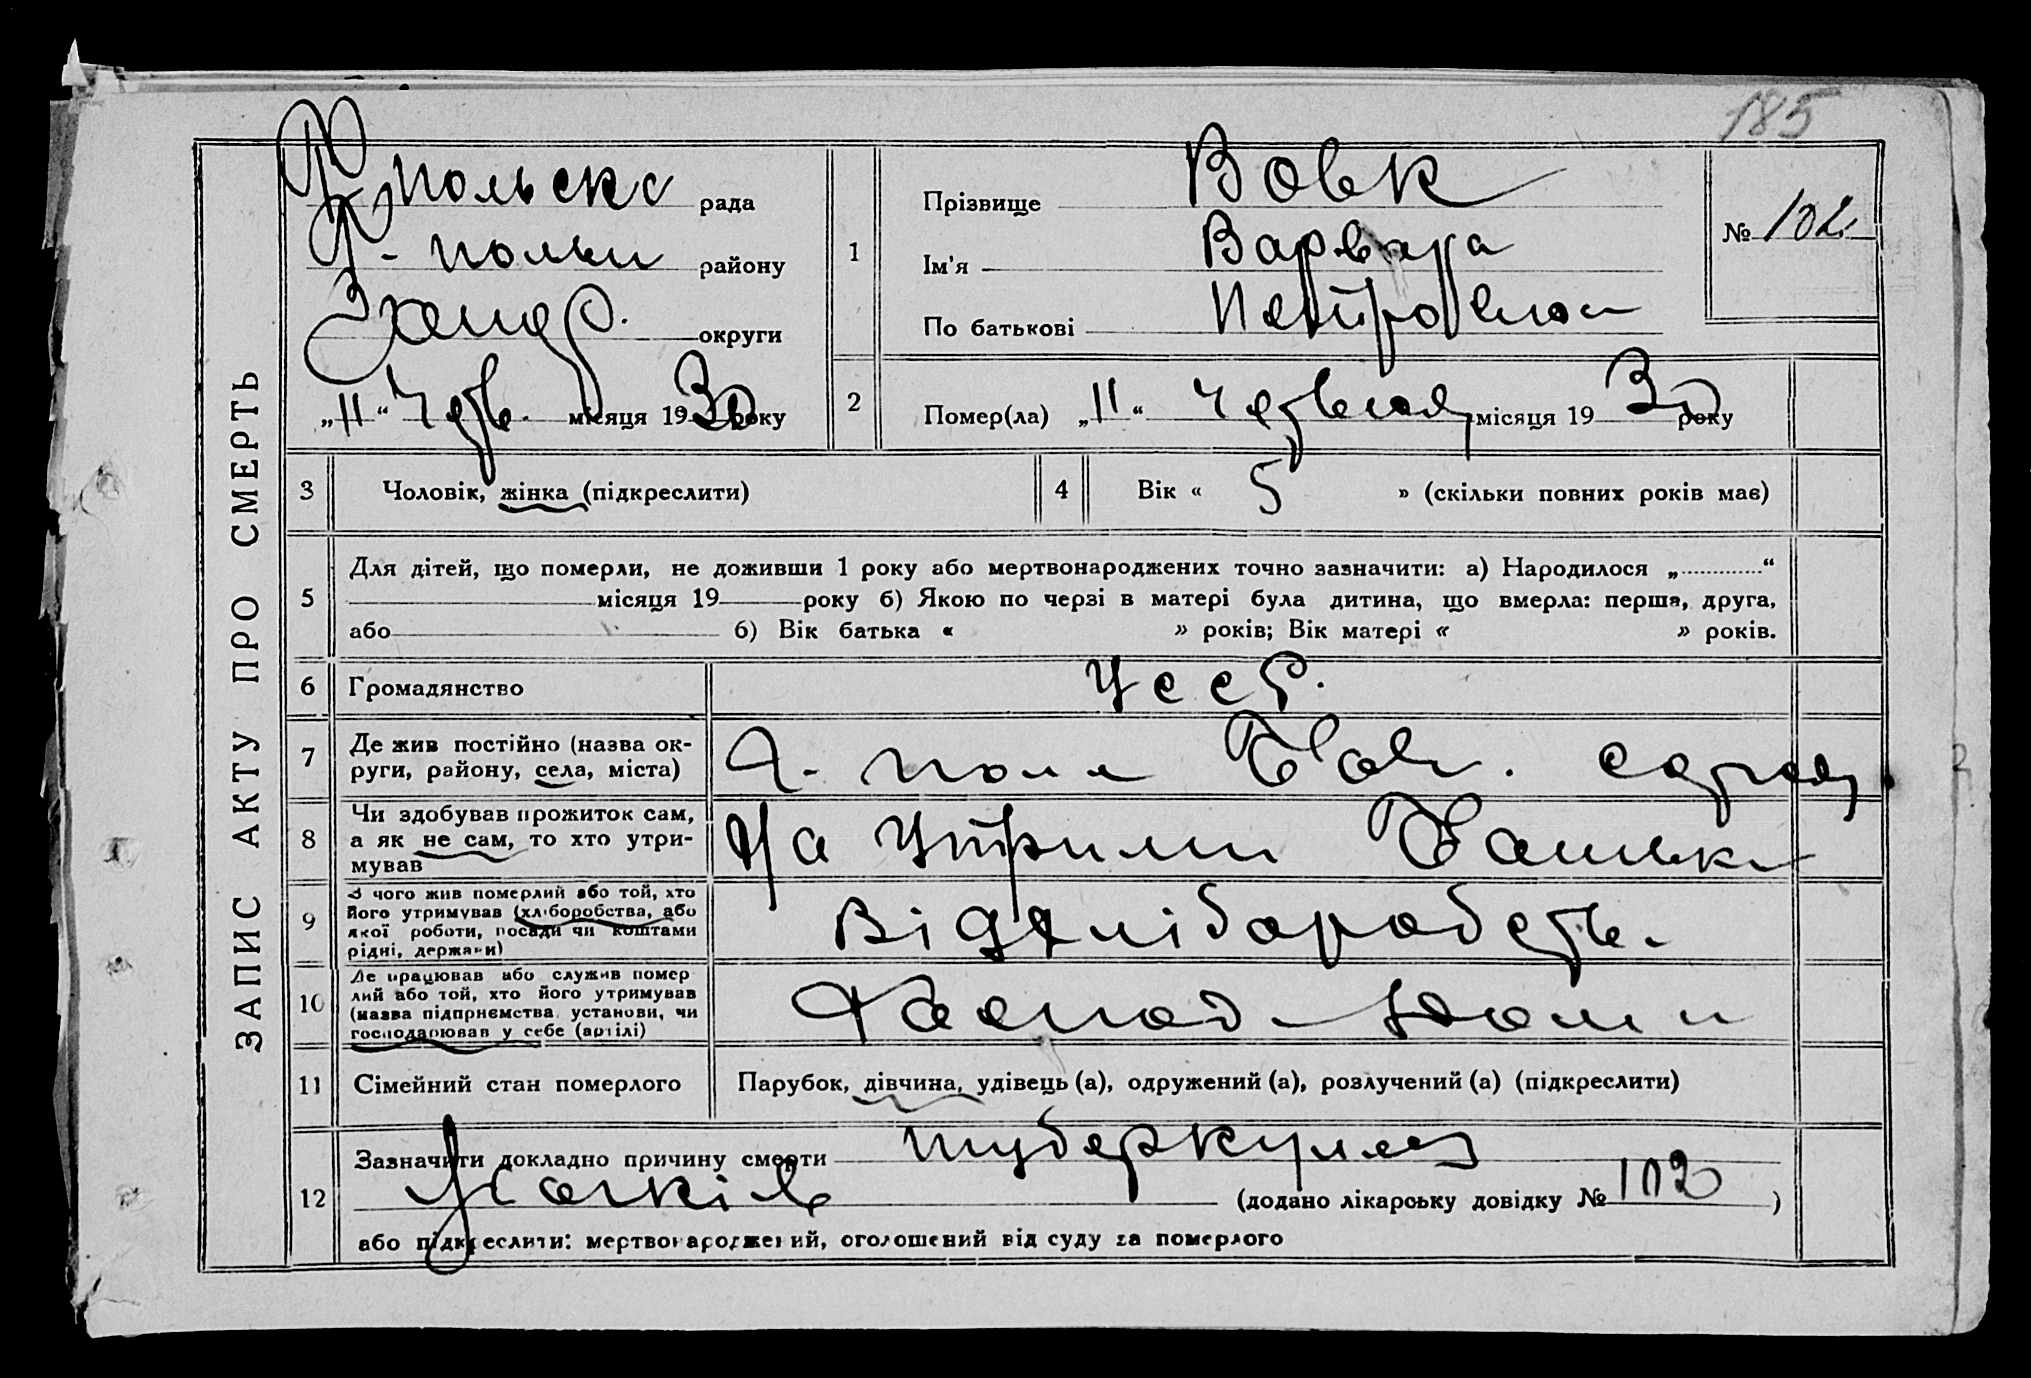 185
ЗАПИС АКТУ ПРО СМЕРТЬ
польска рада
району
округи
„11“ Черв. місяця 1930 року
1
Прізвище Вовк
Ім'я Варвара
По батькові Петровна
№ 102
2
Помер(ла) „11“ Червня місяця 1930 року
3
Чоловік, жінка (підкреслити)
4
Вік « 5 » (скільки повних років має)
5
Для дітей, що померли, не доживши 1 року або мертвонароджених точно зазначити: а) Народилося „ “
місяця 19 року б) Якою по черзі в матері була дитина, що вмерла: перша, друга,
або б) Вік батька « » років; Вік матері « » років.
6
Громадянство
УССР.
7
Де жив постійно (назва ок-
руги, району, села, міста)
8
Чи здобував прожиток сам,
а як не сам, то хто утри-
мував
На утрим Батьки
9
З чого жив померлий або той, хто
його утримував (хліборобства, або
якої роботи, посади чи коштами
рідні, держави)
Від хлібороб
10
Де працював або служив помер
лий або той, хто його утримував
(назва підприємства, установи, чи
господарював у себе (артілі)
Господ
11
Сімейний стан померлого
Парубок, дівчина, удівець (а), одружений (а), розлучений (а) (підкреслити)
12
Зазначити докладно причину смерти туберкулез
(додано лікарську довідку № 102 )
або підкреслити: мертвонароджений, оголошений від суду за померлого